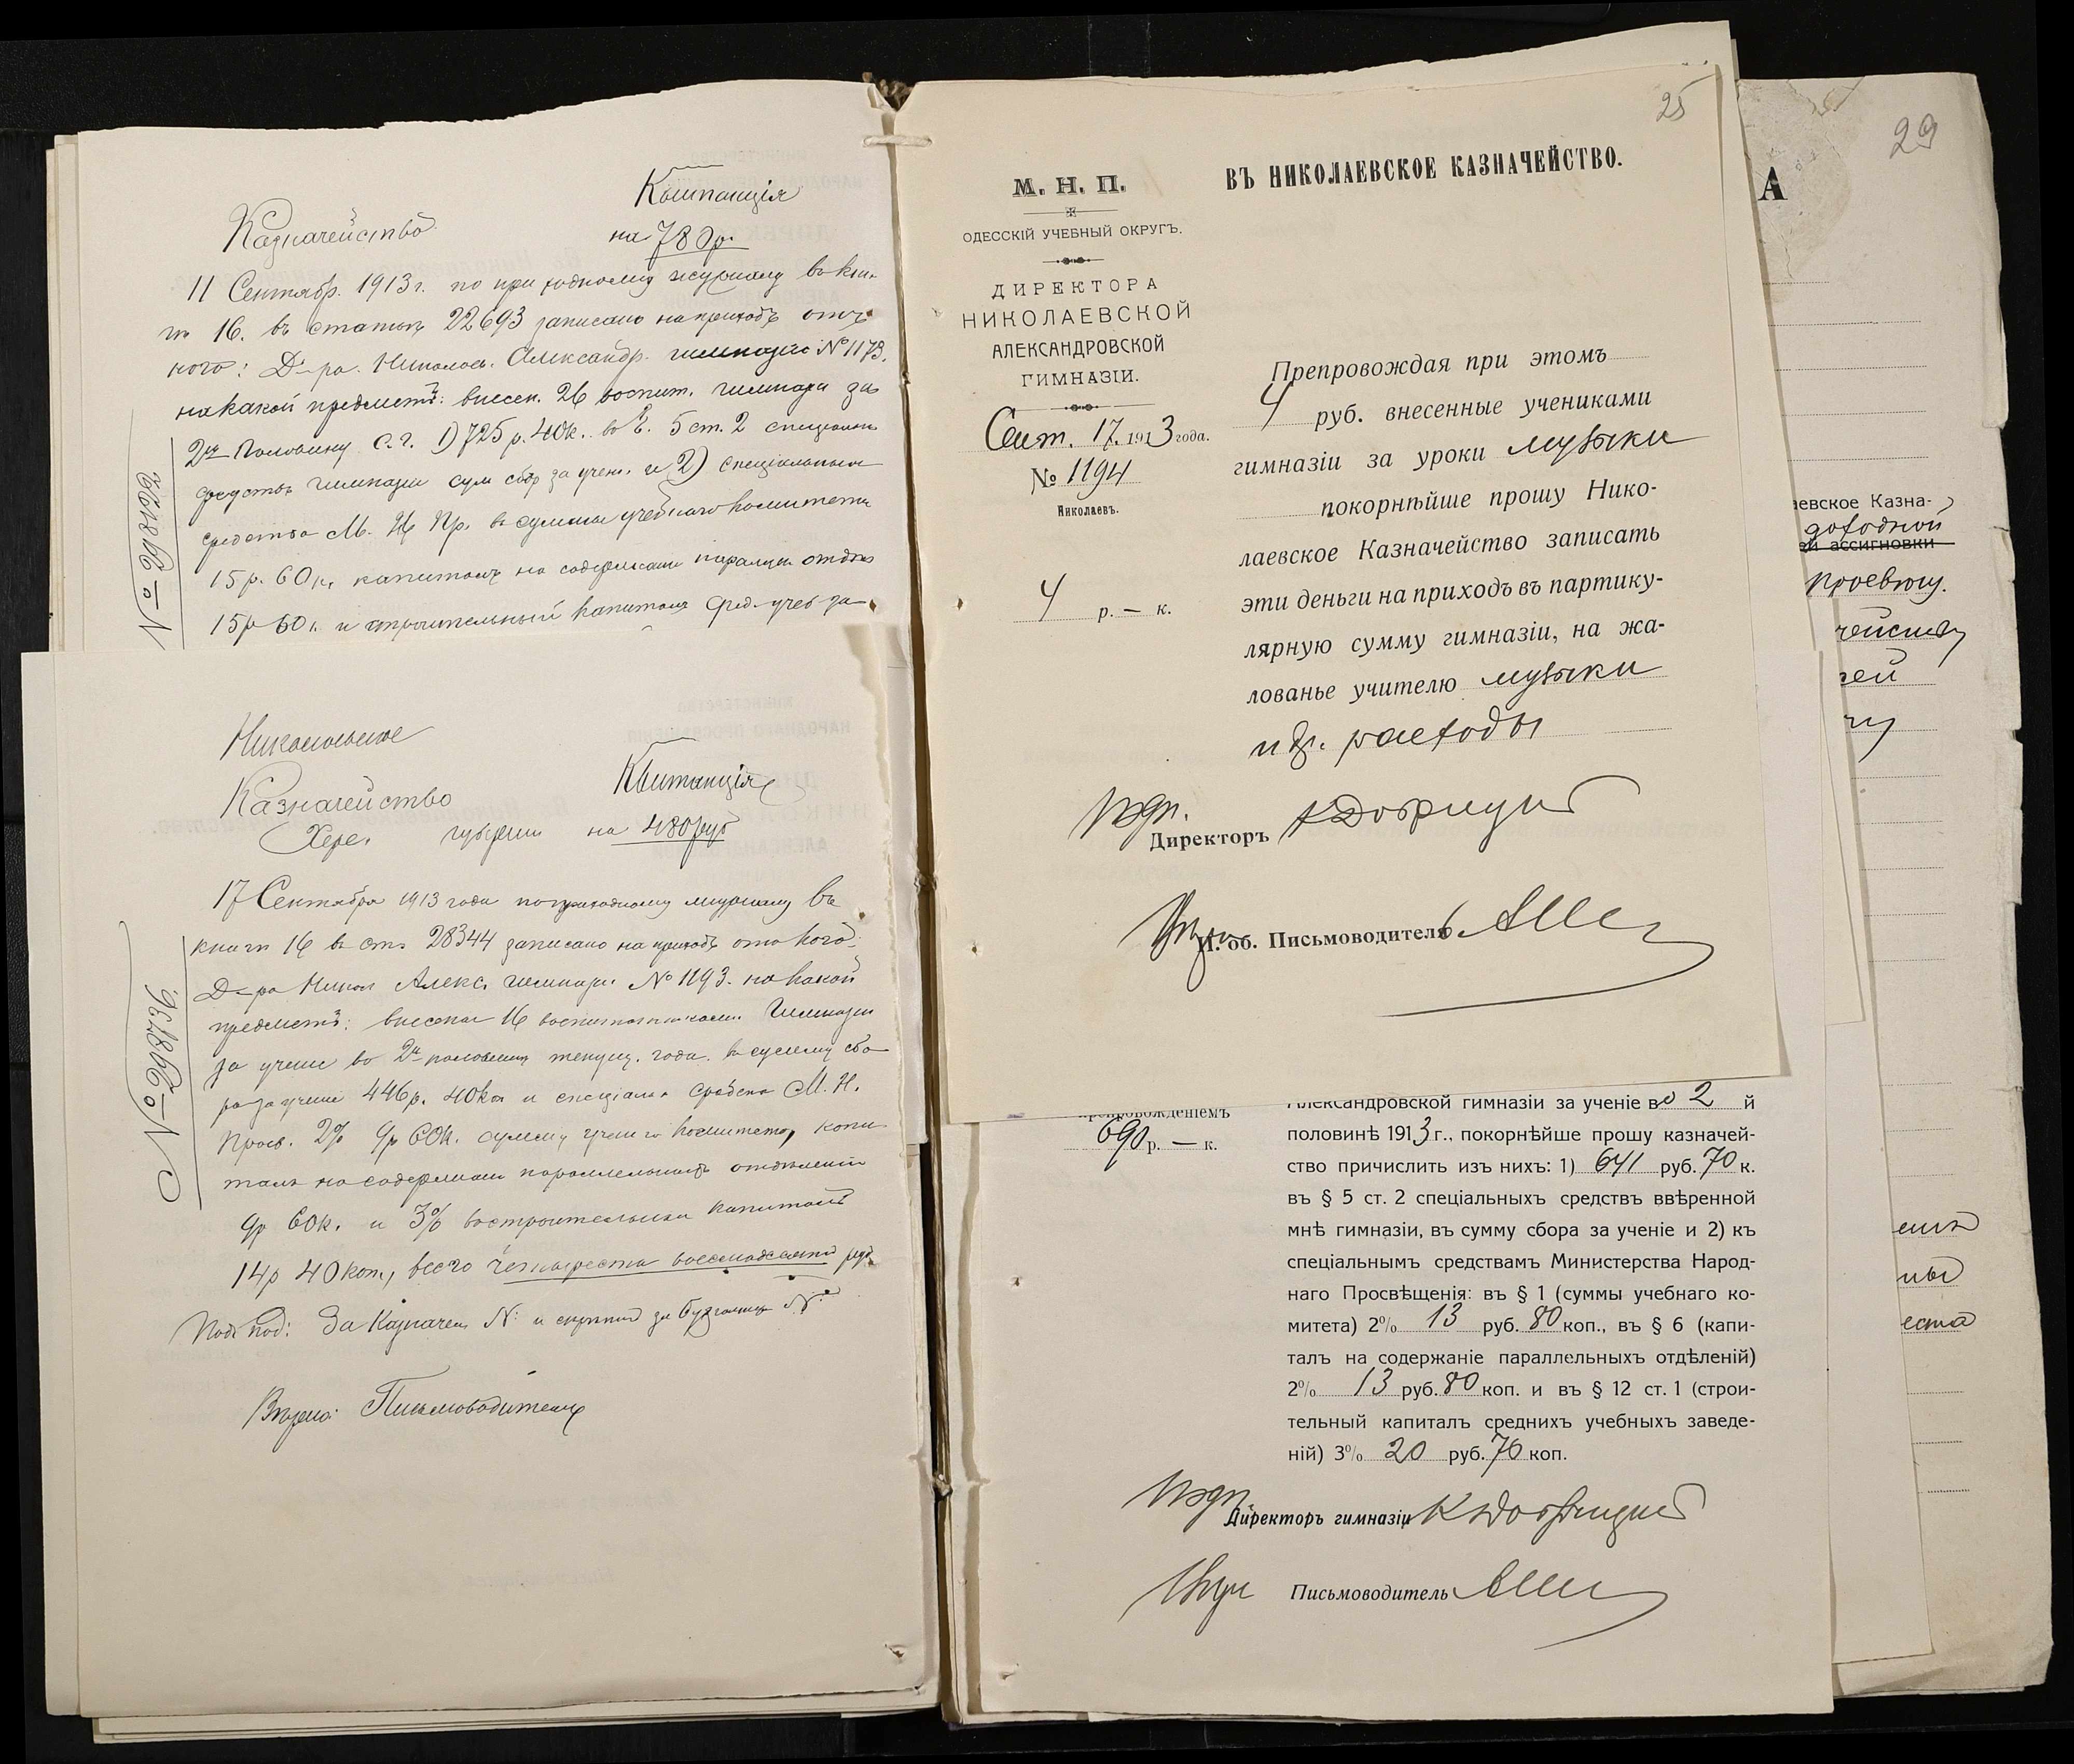 Казначейство
Квитанція
на 780р.
11 Сентябр. 1913 г. по приходному журналу въ кни-
гѣ 16. въ статьѣ 22693 записано на приходъ отъ
кого: Д-ра. Николаев. Александр. гимназіи № 1173.
на какой предметъ: внесен. 26 воспит. гимназіи за
2ю половину с. г. 1) 725 р. 40 к. въ § 5 ст. 2 спеціальн
средствъ гимназіи сум сбор за учен. и 2) спеціальныя
средства М. Н. Пр. въ суммы учебнаго комитета
15 р. 60 к. капиталъ на содержаніе параллел отдѣл
15 р 60 к. и строительный капиталъ сред. учеб за-
Николаевское
Казначейство
Херс. губерніи
Квитанція
на 480 руб
17 Сентября 1913 года по приходному журналу въ
книгѣ 16 въ ст. 28344 записано на приходъ отъ кого:
Д-ра Никол Алекс. гимназіи № 1193. на какой
предметъ: внесены 16 воспитанниками Гимназіи
за ученіе во 2й половинѣ текущ. года. въ сумму сбо-
ра за ученіе 446 р. 40 коп и спеціальн средства М. Н.
Просв. 2% 9 р 60 к. сумму учен го комитета, капи
талъ на содержаніе параллельныхъ отдѣленій
9 р 60 к. и 3% въ строительный капиталъ
14 р 40 коп, всего четыреста восемьдесятъ руб.
Под под: За Казначея N: и скрѣпилъ за Бухгалтера N:
Вѣрно: Письмоводитель
25
М. Н. П.
ОДЕССКІЙ УЧЕБНЫЙ ОКРУГЪ.
ДИРЕКТОРА
НИКОЛАЕВСКОЙ
АЛЕКСАНДРОВСКОЙ
ГИМНАЗІИ.
Сент. 17. 1913 года.
№ 1194
Николаевъ.
4 р. — к.
ВЪ НИКОЛАЕВСКОЕ КАЗНАЧЕЙСТВО.
Препровождая при этомъ
4 руб. внесенные учениками
гимназіи за уроки музыки
покорнѣйше прошу Нико-
лаевское Казначейство записать
эти деньги на приходъ въ партику-
лярную сумму гимназіи, на жа-
лованье учителю музыки
и др. расходы
Директоръ
И. об. Письмоводителя
препровожденіемъ
690 р. — к.
Александровской гимназіи за ученіе во 2 й
половинѣ 1913 г., покорнѣйше прошу казначей-
ство причислить изъ нихъ: 1) 641 руб. 70 к.
въ § 5 ст. 2 спеціальныхъ средствъ ввѣренной
мнѣ гимназіи, въ сумму сбора за ученіе и 2) къ
спеціальнымъ средствамъ Министерства Народ-
наго Просвѣщенія: въ § 1 (суммы учебнаго ко-
митета) 2% 13 руб. 80 коп., въ § 6 (капи-
талъ на содержаніе параллельныхъ отдѣленій)
2% 13 руб. 80 коп. и въ § 12 ст. 1 (строи-
тельный капиталъ среднихъ учебныхъ заведе-
ній) 3% 20 руб. 70 коп.
Директоръ гимназіи
Письмоводитель
29
А
аевское Казна-
доходной
ей ассигновки